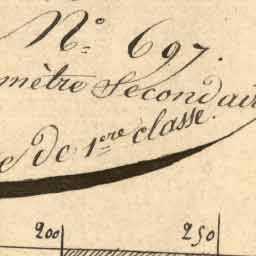 N.° 697.
mètre Secondair
e de 1ere classe.
200 250